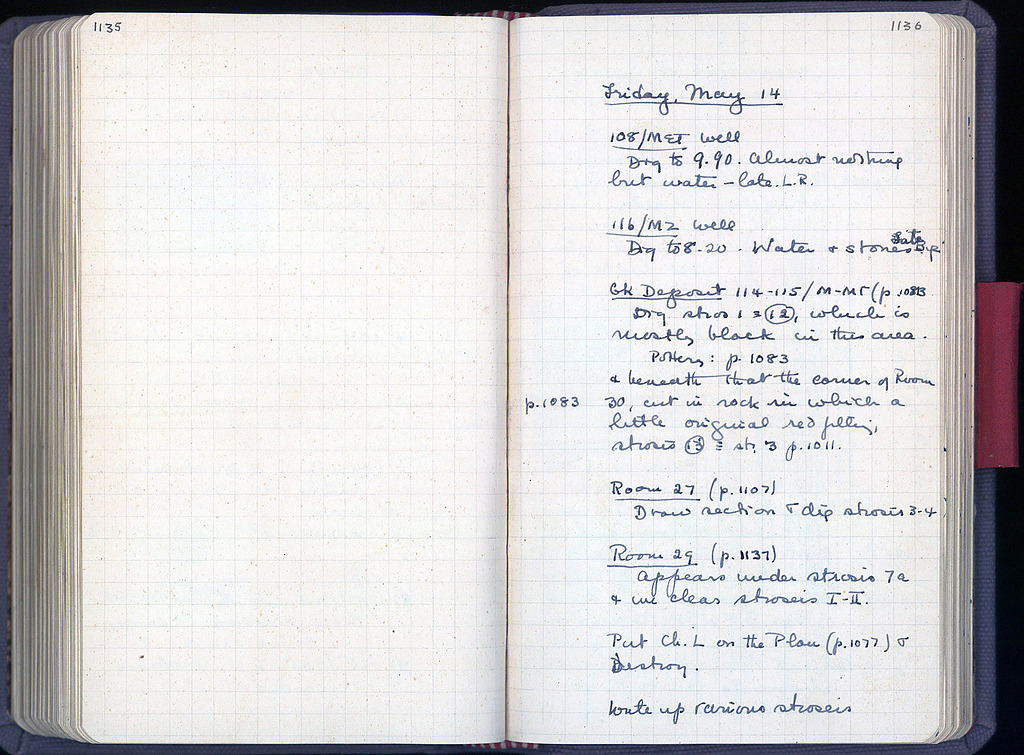 1135
1136
Friday, May 14
108/MΣΤ well
Dig to 9.90. Almost nothing
but water - late L.R.
116/MZ well
Dig to 8.20. Water & stones Late Byz
Gk Deposit 114-115/M-MΓ (p. 1083
Dig stros 1 = 12, which is
mostly black in this area.
Pottery: p. 1083
& beneath that the corner of Room
p.1083
30, cut in rock in which a
little original red filling,
strosis 13 = str. 3 p. 1011.
Room 27 (p. 1107)
Draw section & dig strosis 3-4
Room 29 (p. 1137)
Appears under strosis 7a
& we clear stroseis I-II.
Put Ch. L on the Plan (p. 1077) &
Destroy.
Write up various stroseis